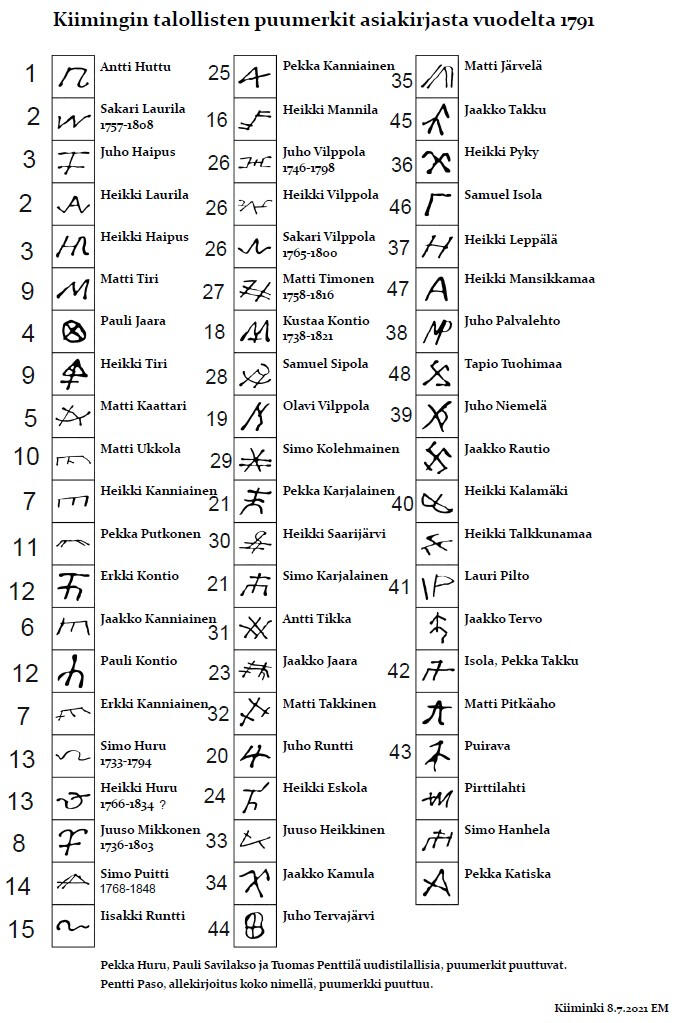 Kiimingin talollisten puumerkit asiakirjasta vuodelta 1791
1 Antti Huttu
2 Sakari Laurila
1757-1808
3 Juho Haipus
2 Heikki Laurila
3 Heikki Haipus
9 Matti Tiri
4 Pauli Jaara
9 Heikki Tiri
5 Matti Kaattari
10 Matti Ukkola
7 Heikki Kanniainen
11 Pekka Putkonen
12 Erkki Kontio
6 Jaakko Kanniainen
12 Pauli Kontio
7 Erkki Kanniainen
13 Simo Huru
1733-1794
13 Heikki Huru
1766-1834 ?
8 Juuso Mikkonen
1736-1803
14 Simo Puitti
1768-1848
15 Iisakki Runtti
25 Pekka Kanniainen
16 Heikki Mannila
26 Juho Vilppola
1746-1798
26 Heikki Vilppola
26 Sakari Vilppola
1765-1800
27 Matti Timonen
1758-1816
18 Kustaa Kontio
1738-1821
28 Samuel Sipola
19 Olavi Vilppola
29 Simo Kolehmainen
21 Pekka Karjalainen
30 Heikki Saarijärvi
21 Simo Karjalainen
31 Antti Tikka
23 Jaakko Jaara
32 Matti Takkinen
20 Juho Runtti
24 Heikki Eskola
33 Juuso Heikkinen
34 Jaakko Kamula
44 Juho Tervajärvi
35 Matti Järvelä
45 Jaakko Takku
36 Heikki Pyky
46 Samuel Isola
37 Heikki Leppälä
47 Heikki Mansikkamaa
38 Juho Palvalehto
48 Tapio Tuohimaa
39 Juho Niemelä
Jaakko Rautio
40 Heikki Kalamäki
Heikki Talkkunamaa
41 Lauri Pilto
Jaakko Tervo
42 Isola, Pekka Takku
Matti Pitkäaho
43 Puirava
Pirttilahti
Simo Hanhela
Pekka Katiska
Pekka Huru, Pauli Savilakso ja Tuomas Penttilä uudistilallisia, puumerkit puuttuvat.
Pentti Paso, allekirjoitus koko nimellä, puumerkki puuttuu.
Kiiminki 8.7.2021 EM